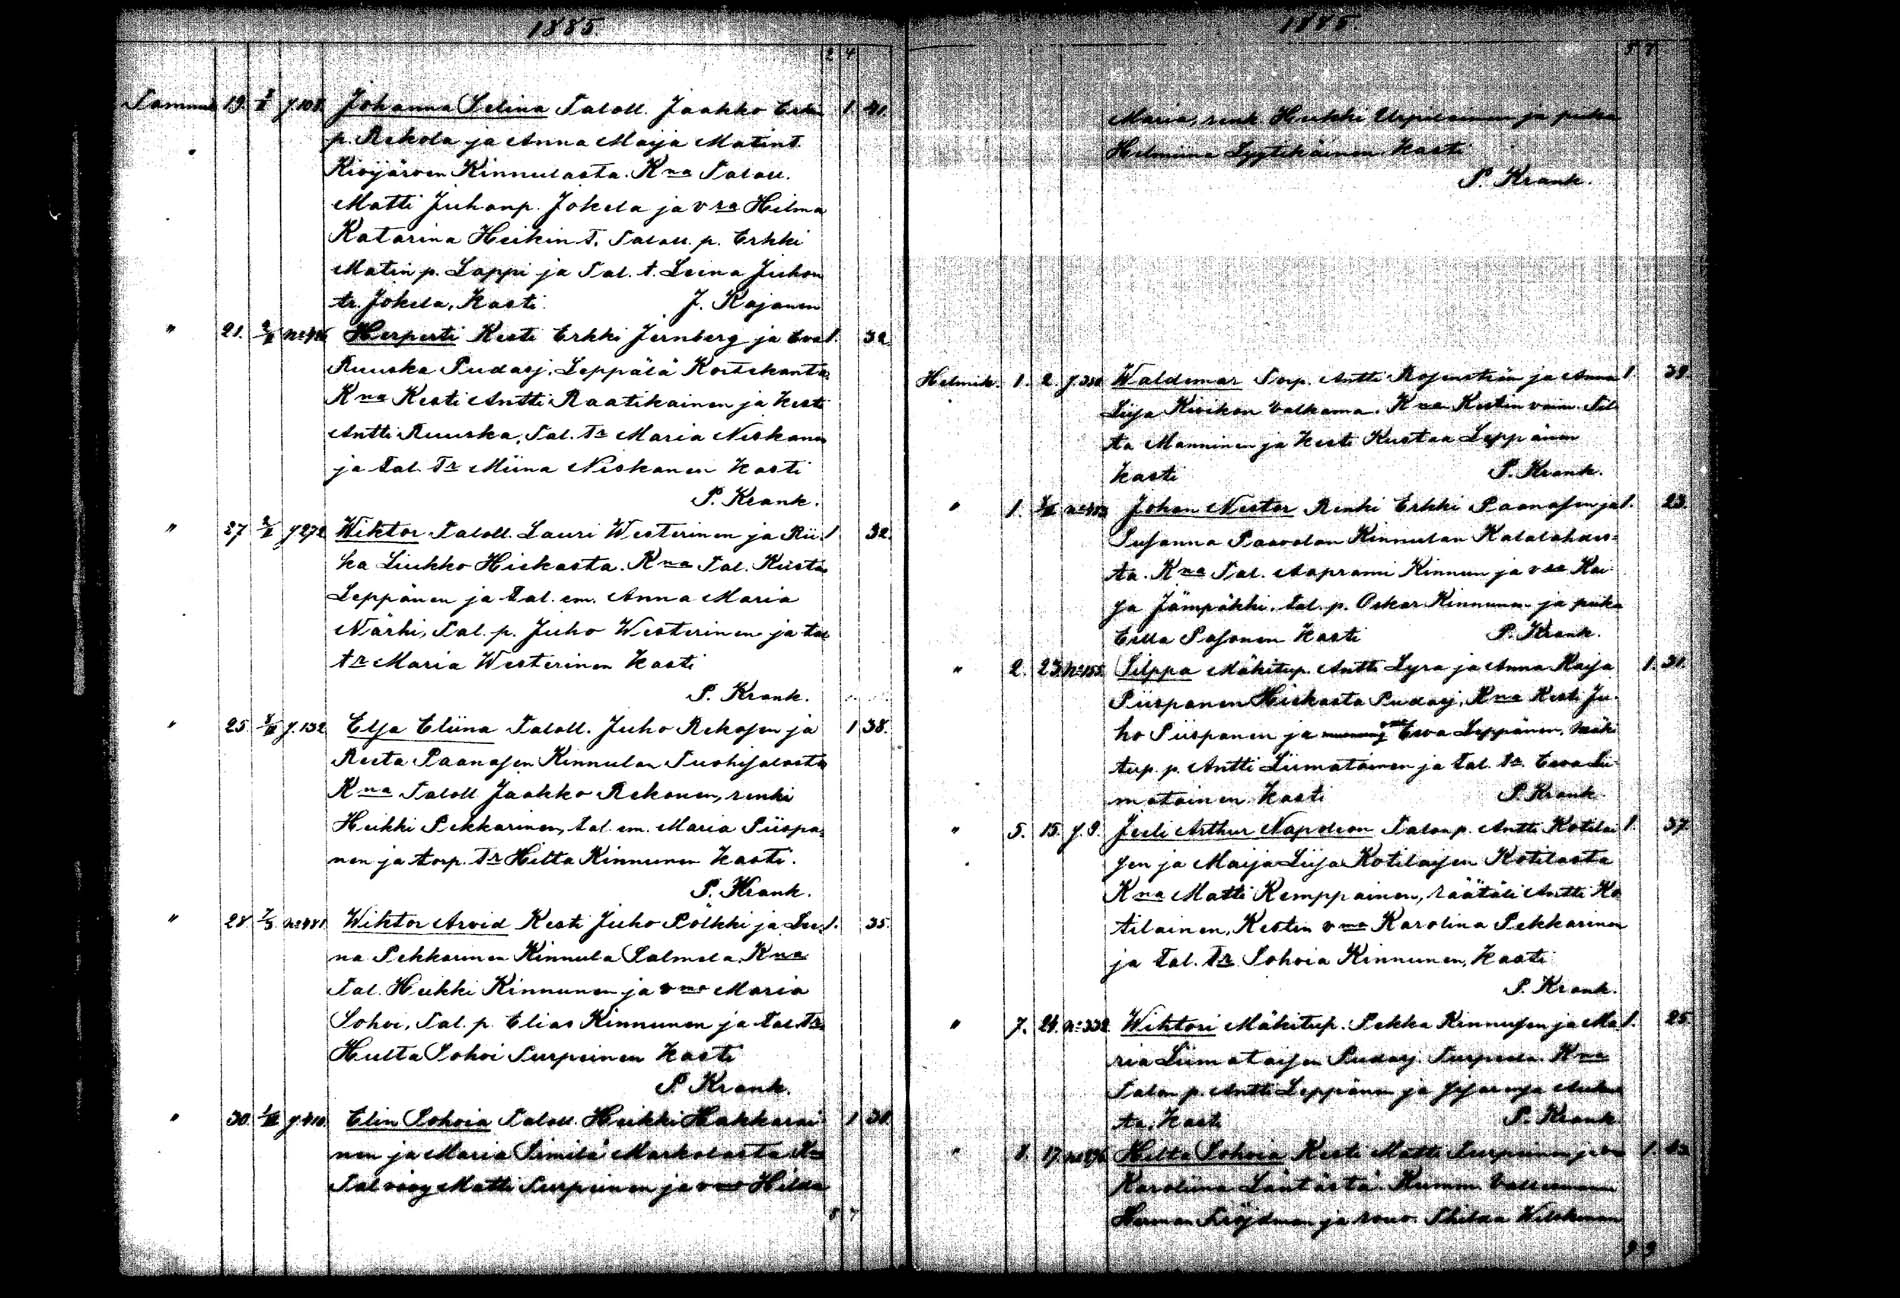 1885
2 4
Tammik. 19. 8/II J.108. Johanna Selina Taloll. Jaakko Erki 1. 41.
p. Rekola ja Anna Maija Matint.
Kivijärven Kinnulasta. Kna Taloll.
Matti Juhanp. Jokela ja vra Hilma
Katarina Heikin t. Taloll. p. Erkki
Matin p. Lappi ja Tal. t. Leena Juhon
tr. Jokela, Kasti J. Kajanen
" 21. Herperti Kesti Erkki Jernberg ja Eva 1. 32
Ruuska Pudasj. Leppälä Koitekanta
Kna Kesti Antti Raatikainen ja Kesti
Antti Ruuska, Tal. Tr Maria Niskanen
ja tal. Tr Miina Niskanen Kasti
P. Krank.
" 27 J 272 Wiktor Taloll. Lauri Westerinen ja Rii- 1 32.
ka Liukko Hiekasta. Kna Tal. Kusta
Leppänen ja tal. em. Anna Maria
Närhi, Tal. p. Juho Westerinen ja tal
tr Maria Westerinen Kasti
P. Krank.
" 25 J.132 Elsa Eliina Taloll. Juho Rekosen ja 1 38.
Reeta Paanasen Kinnulan
Kna Taloll Jaakko Rekonen, renki
Heikki Pekkarinen, tal. em. Maria Piispa-
nen ja torp. Tr Hilta Kinnunen Kasti.
P. Krank.
" 28 No 481 Wiktor Arvid Kesti Juho Pölkki ja Lee- 1. 35.
na Pekkarinen Kinnula Salmela, Kna
Tal. Heikki Kinnunen ja vmo Maria
Sohvi, Tal. p. Elias Kinnunen ja tal. Tr
Hulta Sohvi Turpeinen Kasti
P Krank.
" 30. J.410. Elin Sohvia Taloll. Heikki Hakkarai- 1 30.
nen ja Maria Similä Markolasta Kna
Talvävy Matti Turpeinen ja vmo Hilda
8 7
1885.
5 7
Maria, renk Heikki Urpilainen ja piika
Helmiina Lyytikäinen Kasti
P. Krank.
Helmik. 1. 2. Waldemar Torp. Antti Rosenström ja Anna 1. 39.
Liisa Kivikon Valkama. Kna Kestin vaim. Til
ta Manninen ja Kesti Kustaa Leppänen
Kasti P. Krank.
" 1. Johan Nestor Renki Erkki Paanasen ja 1. 23.
Susanna Paavolan Kinnulan Kalalahdes-
ta. Kna Tal. Aaprami Kinnun ja vaa Kai
sa Jämpäkki. tal. p. Oskar Kinnunen ja piika
Eella Pasonen Kasti P. Krank.
" 2. 23. No 155. Silppa Mäkitup. Antti Lyra ja Anna Kaija 1. 31.
Piisponen Hiekasta Pudasj, Kna Kesti Ju-
ho Piisponen ja Eeva Leppänen, mäki
tup. p. Antti Liimatainen ja tal. tr Eeva Lii-
matainen Kasti P. Krank.
" 5. 15. J. 9. Juli Arthur Napoleon Talonp. Antti Kotilai 1. 37
sen ja Maija Liisa Kotilaisen Kotilasta
Kna Matti Kemppainen, räätäli Antti Ko
tilainen, Kestin vmo Karolina Pekkarinen
ja tal. Tr. Sohvia Kinnunen, Kasti
P. Krank.
" 7. 24. No 332 Wiktori Mäkitup. Pekka Kinnusen ja Ma 1. 25
ria Liimataisen Pudasj. Turpeela. Kna
Talon p. Antti Leppänen ja
Kasti P. Krank.
" 8. 17. Hilta Sohvia Kesti Matti Turpeinen ja 1. 43.
Karoliina Läntästä. Kumm. Vallesmann
Herman Fröjdman ja rouv.
9 9